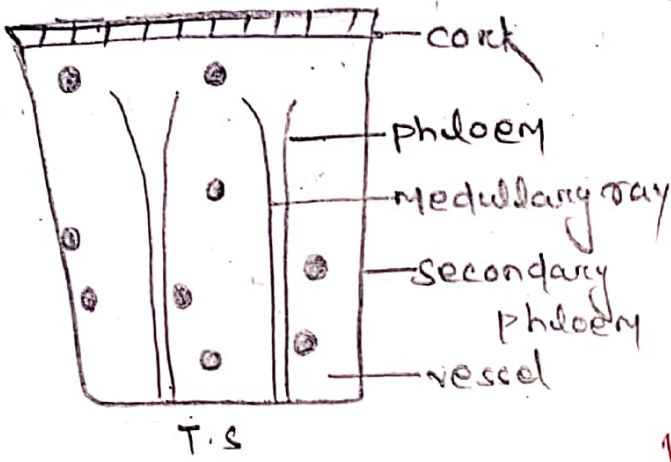 cork
phloem
medullary ray
secondary
phloem
vessel
T.S